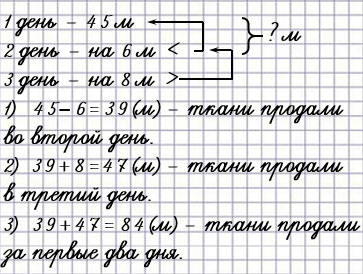 1 день – 45 м
2 день – на 6 м <
3 день – на 8 м >
? м
1) 45 – 6 = 39 (м) – ткани продали
во второй день.
2) 39 + 8 = 47 (м) – ткани продали
в третий день.
3) 39 + 47 = 84 (м) – ткани продали
за первые два дня.